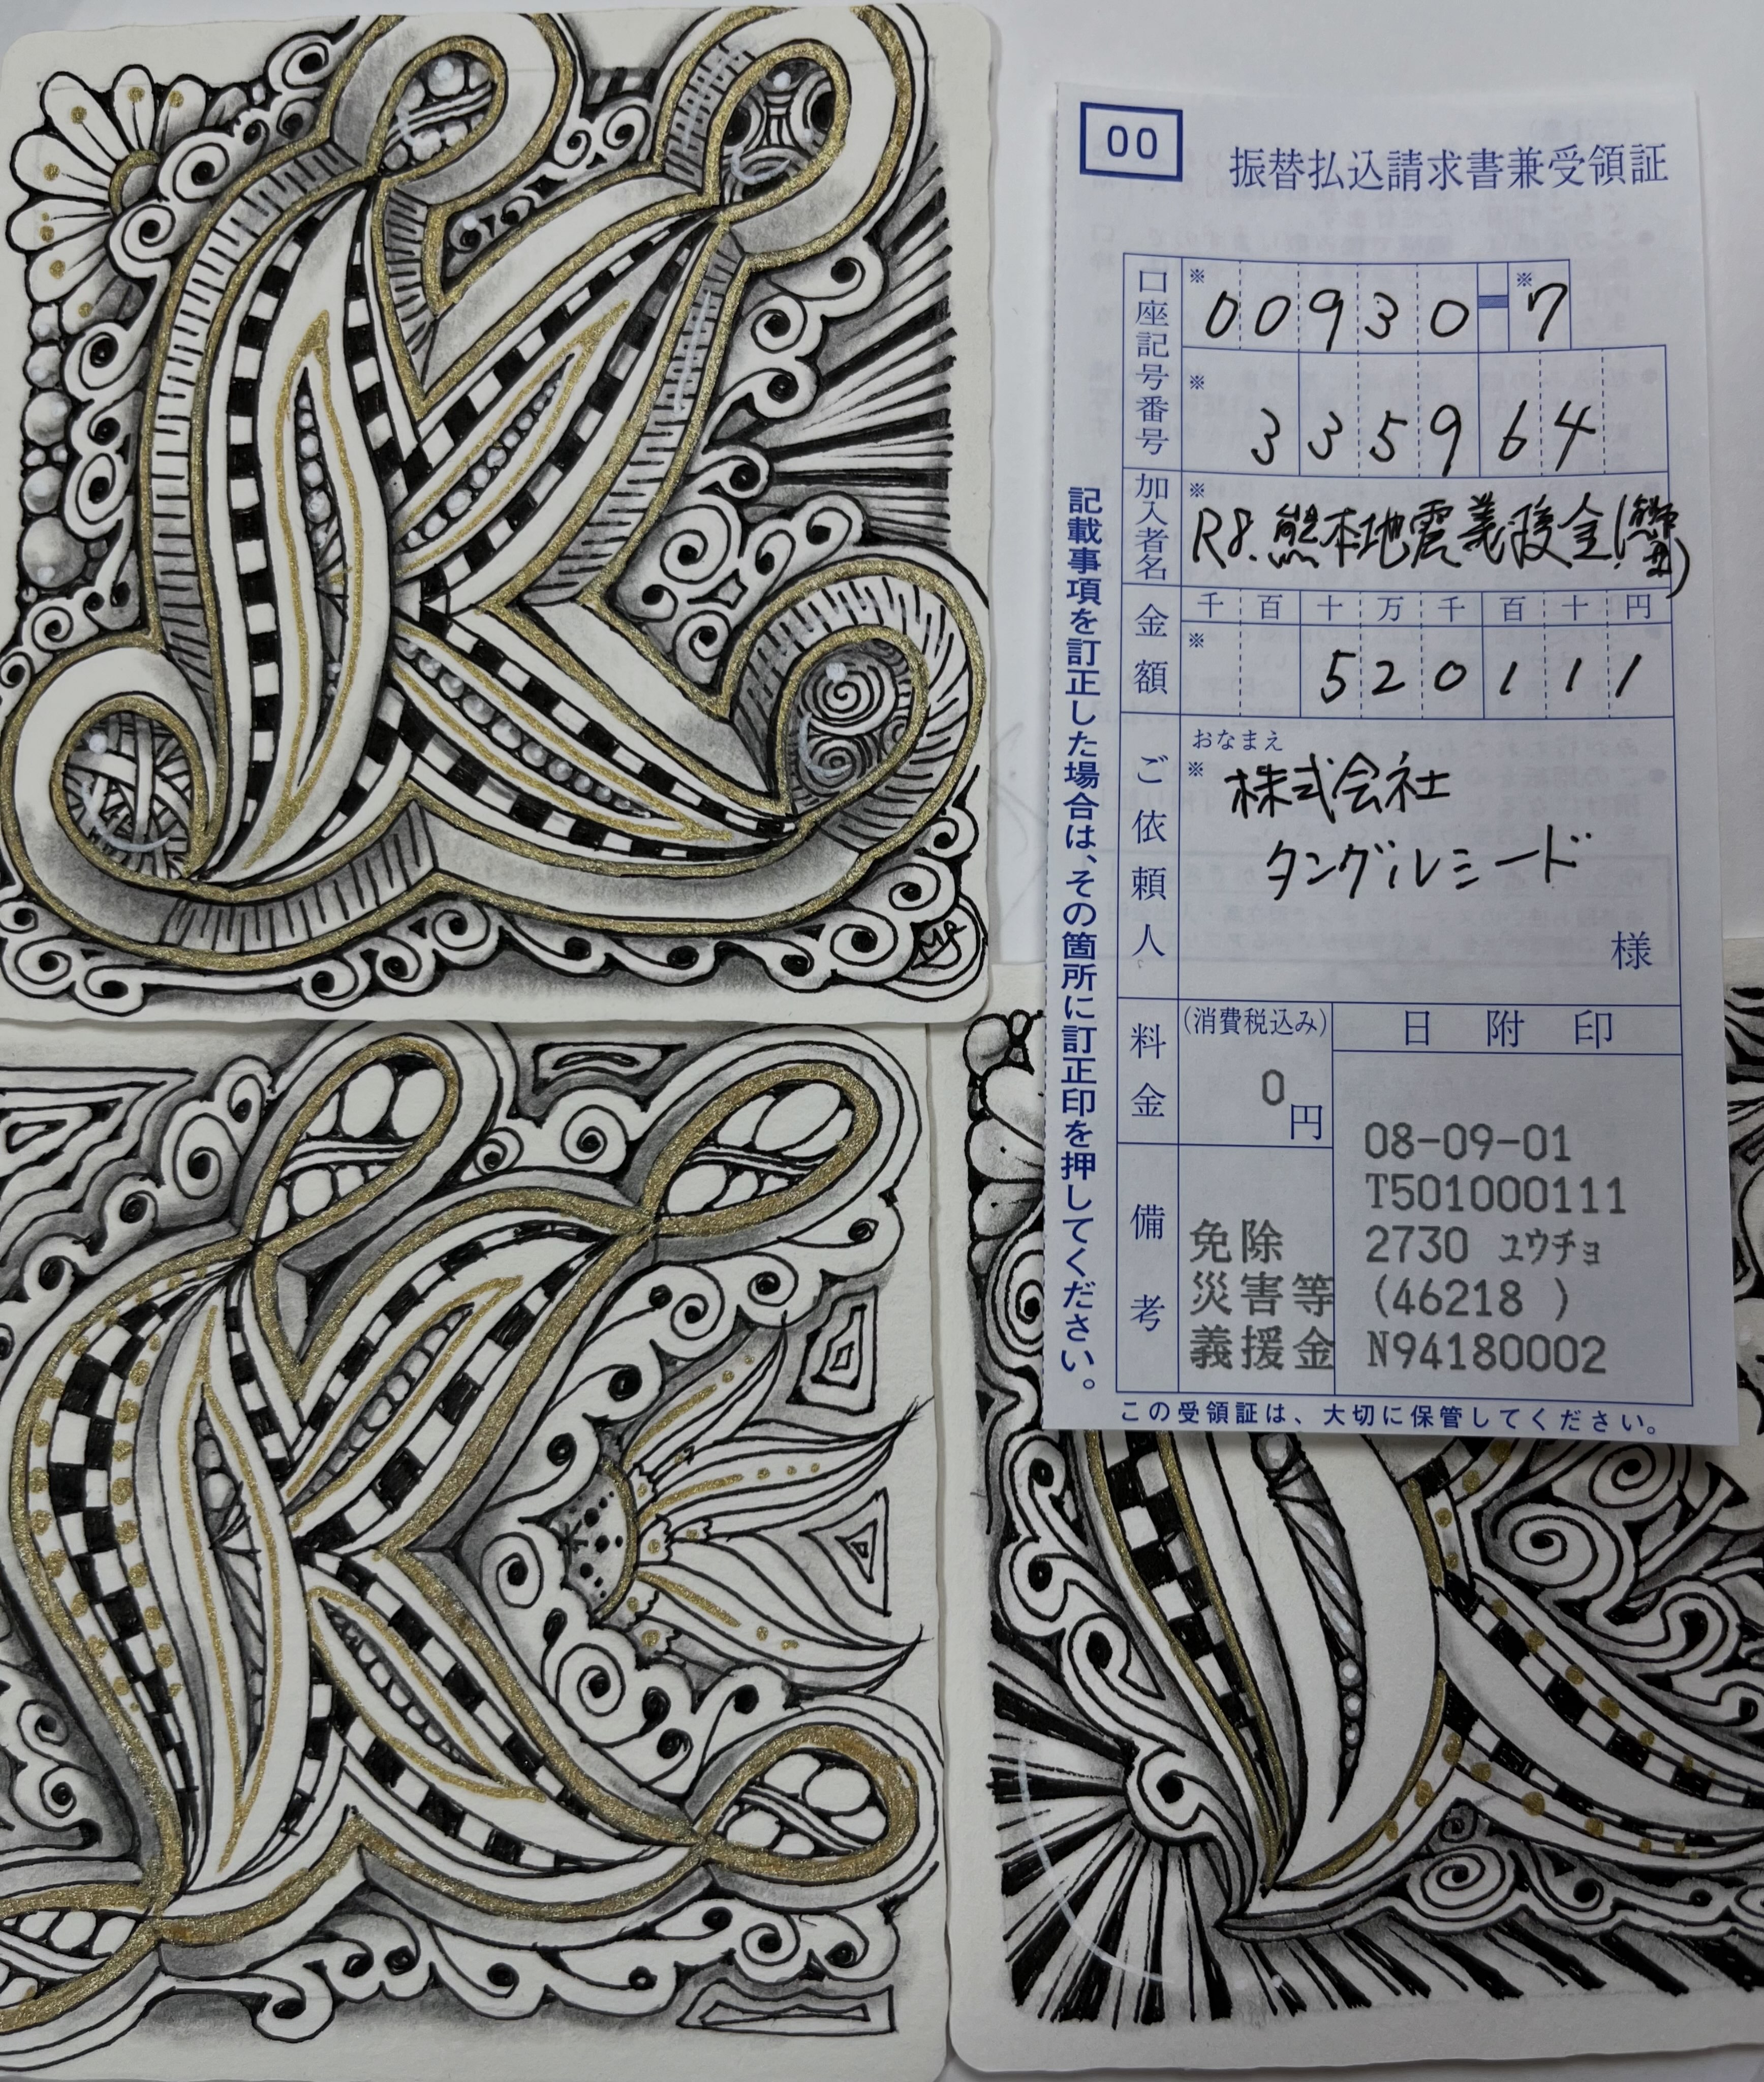 00
振替払込請求書兼受領証
口座記号番号
※ 00930-※7
※ 335964
加入者名
※ R8.熊本地震義援金(
金額
千 百 十 万 千 百 十 円
※ 520111
ご依頼人
おなまえ
※ 株式会社
タングルシード
様
料金
(消費税込み)
0円
日附印
08-09-01
T501000111
2730 ユウチョ
(46218 )
N94180002
備考
免除
災害等
義援金
記載事項を訂正した場合は、その箇所に訂正印を押してください。
この受領証は、大切に保管してください。